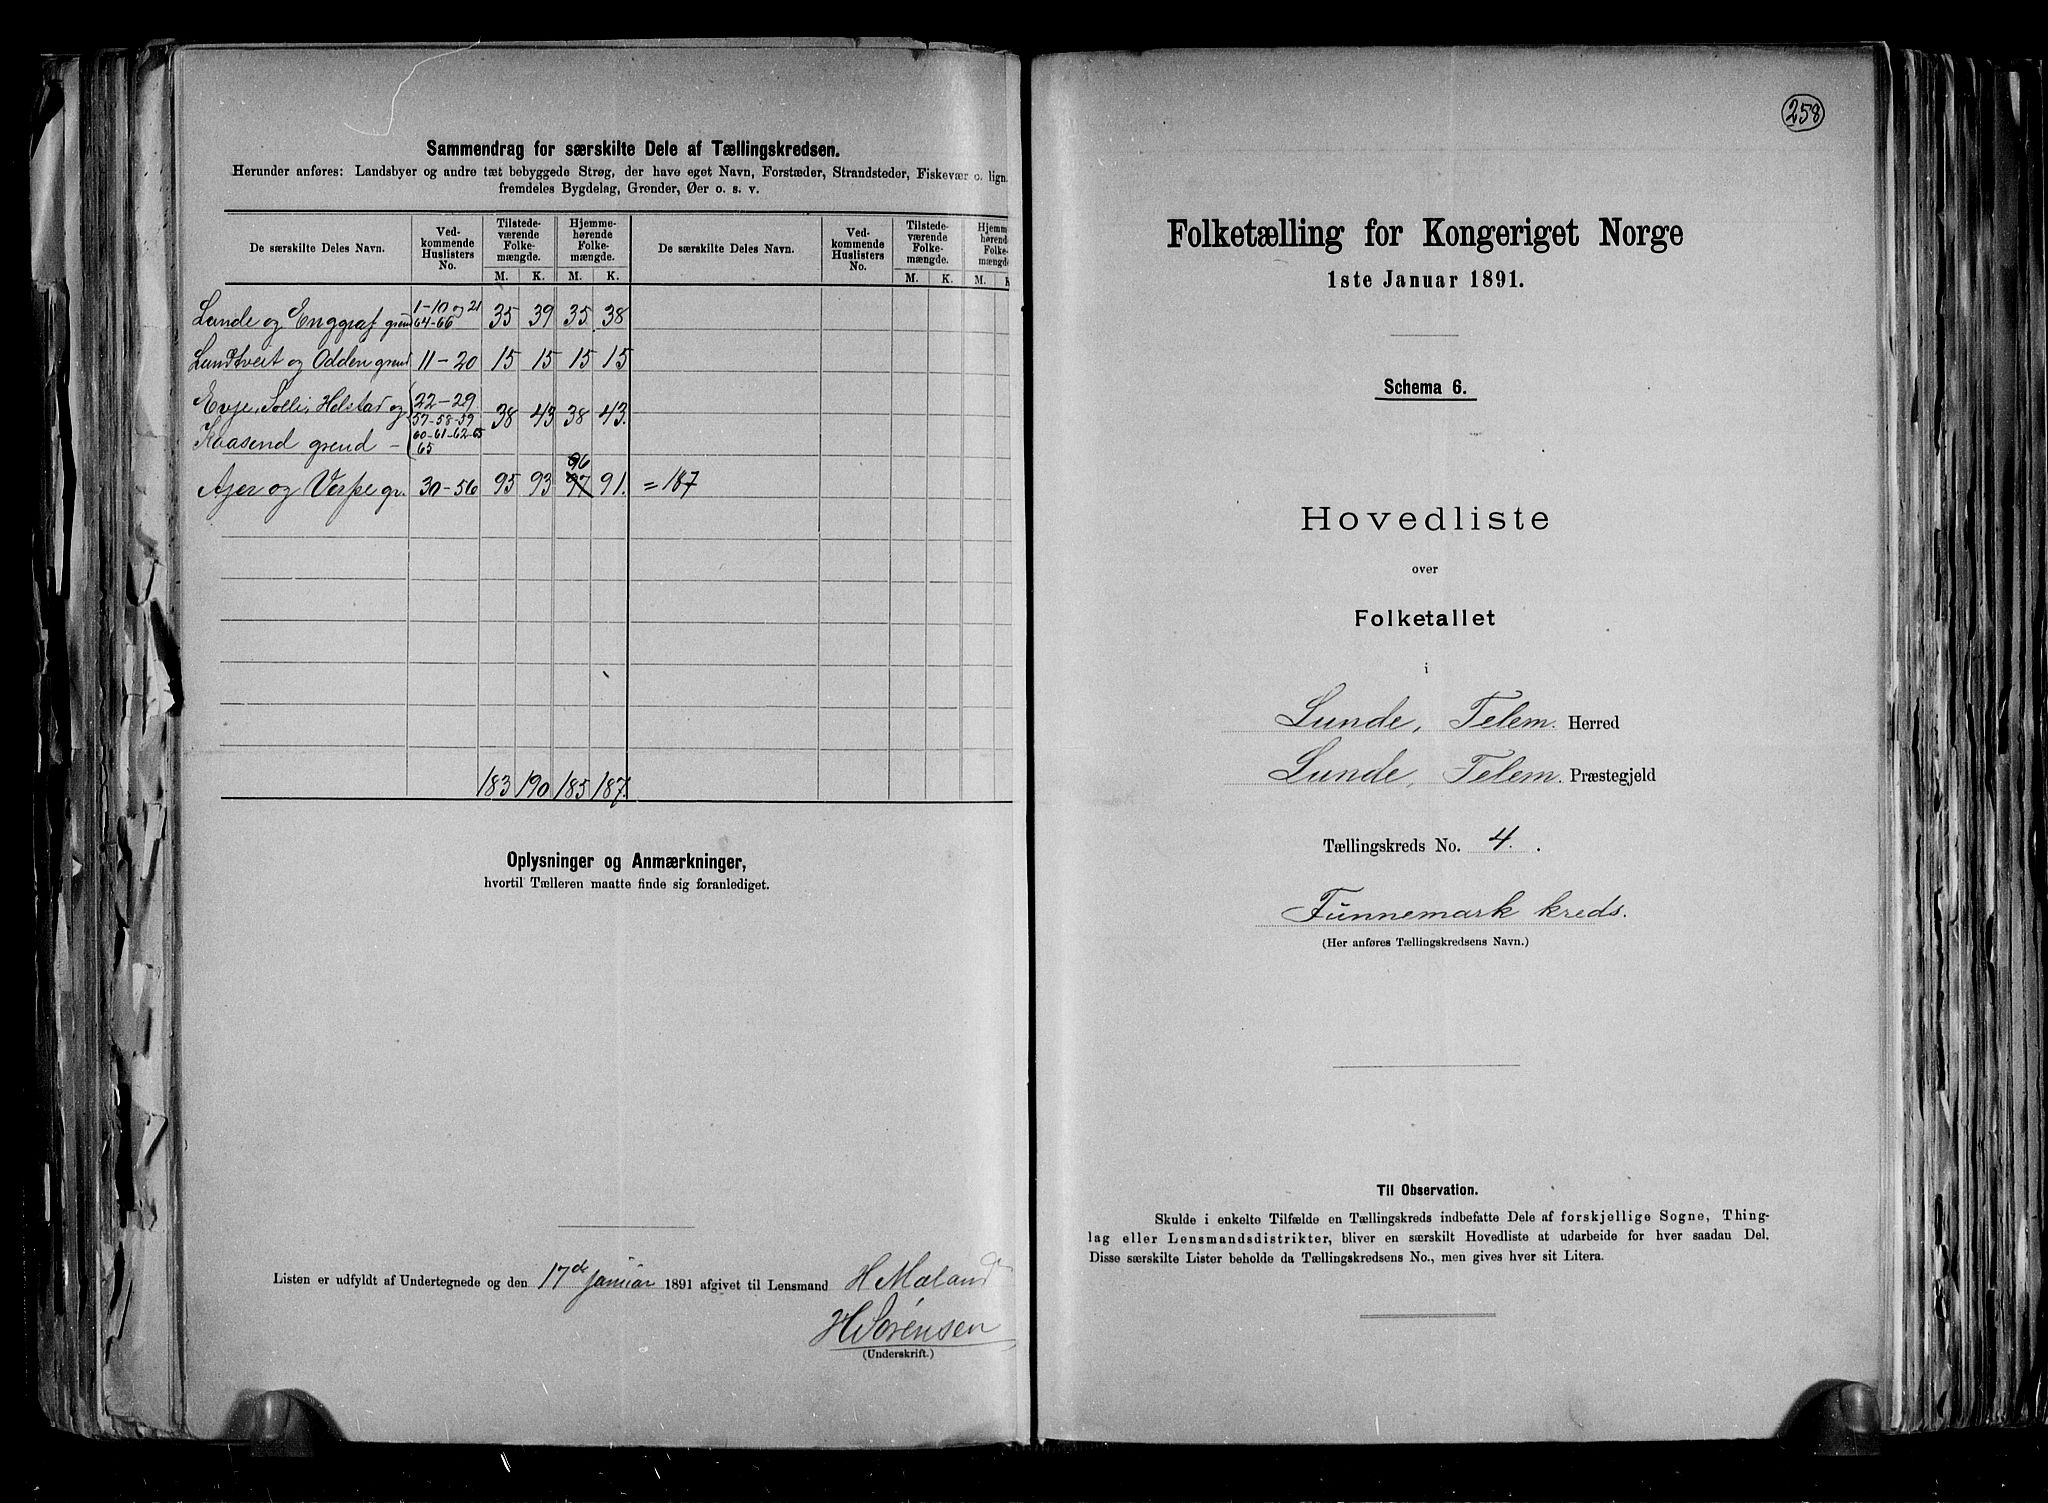 Sammendrag for særskilte Dele af Tællingskredsen.
Herunder anføres: Landsbyer og andre tæt bebyggede Strøg, der have eget Navn, Forstæder, Strandsteder, Fiskevær o. lign.
fremdeles Bygdelag, Grender, Øer o. s. v.
De særskilte Deles Navn. Ved-kommende Huslisters No. Tilstede-værende Folke-mængde. Hjemme-hørende Folke-mængde. De særskilte Deles Navn. Ved-kommende Huslisters No. Tilstede-værende Folke-mængde. Hjemme-hørende Folke-mængde
M. K. M. K. M. K. M. K
Lunde og Enggraf grend 1-10 og 21 64-66 35 39 35. 38
Lundtveit og Odden grend 11-20 15 15 15 15
Evje, Solli, Holstad og 22-29 38 43 38 43.
57-58-59
Kaasend grend - 60-61-62-65
65
96
Ajer og Verpe gr. 30-56 95 93 97 91. = 187
183 190 185 187.
Oplysninger og Anmærkninger,
hvortil Tælleren maatte finde sig foranlediget.
Listen er udfyldt af Undertegnede og den 17de januar 1891 afgivet til Lensmand H Mæland
H Sørensen
(Underskrift.)
258
Folketælling for Kongeriget Norge
1ste Januar 1891.
Schema 6.
Hovedliste
over
Folketallet
i
Lunde, Telem. Herred
Lunde, Telem. Præstegjeld
Tællingskreds No. 4.
Funnemark kreds.
(Her anføres Tællingskredsens Navn.)
Til Observation.
Skulde i enkelte Tilfælde en Tællingskreds indbefatte Dele af forskjellige Sogne, Thing-
lag eller Lensmandsdistrikter, bliver en særskilt Hovedliste at udarbeide for hver saadan Del.
Disse særskilte Lister beholde da Tællingskredsens No., men gives hver sit Litera.